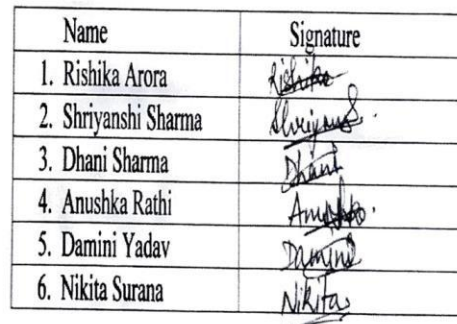 Name Signature
1. Rishika Arora Rishika
2. Shriyanshi Sharma
3. Dhani Sharma Dhani
4. Anushka Rathi Anushka.
5. Damini Yadav Damini
6. Nikita Surana Nikita